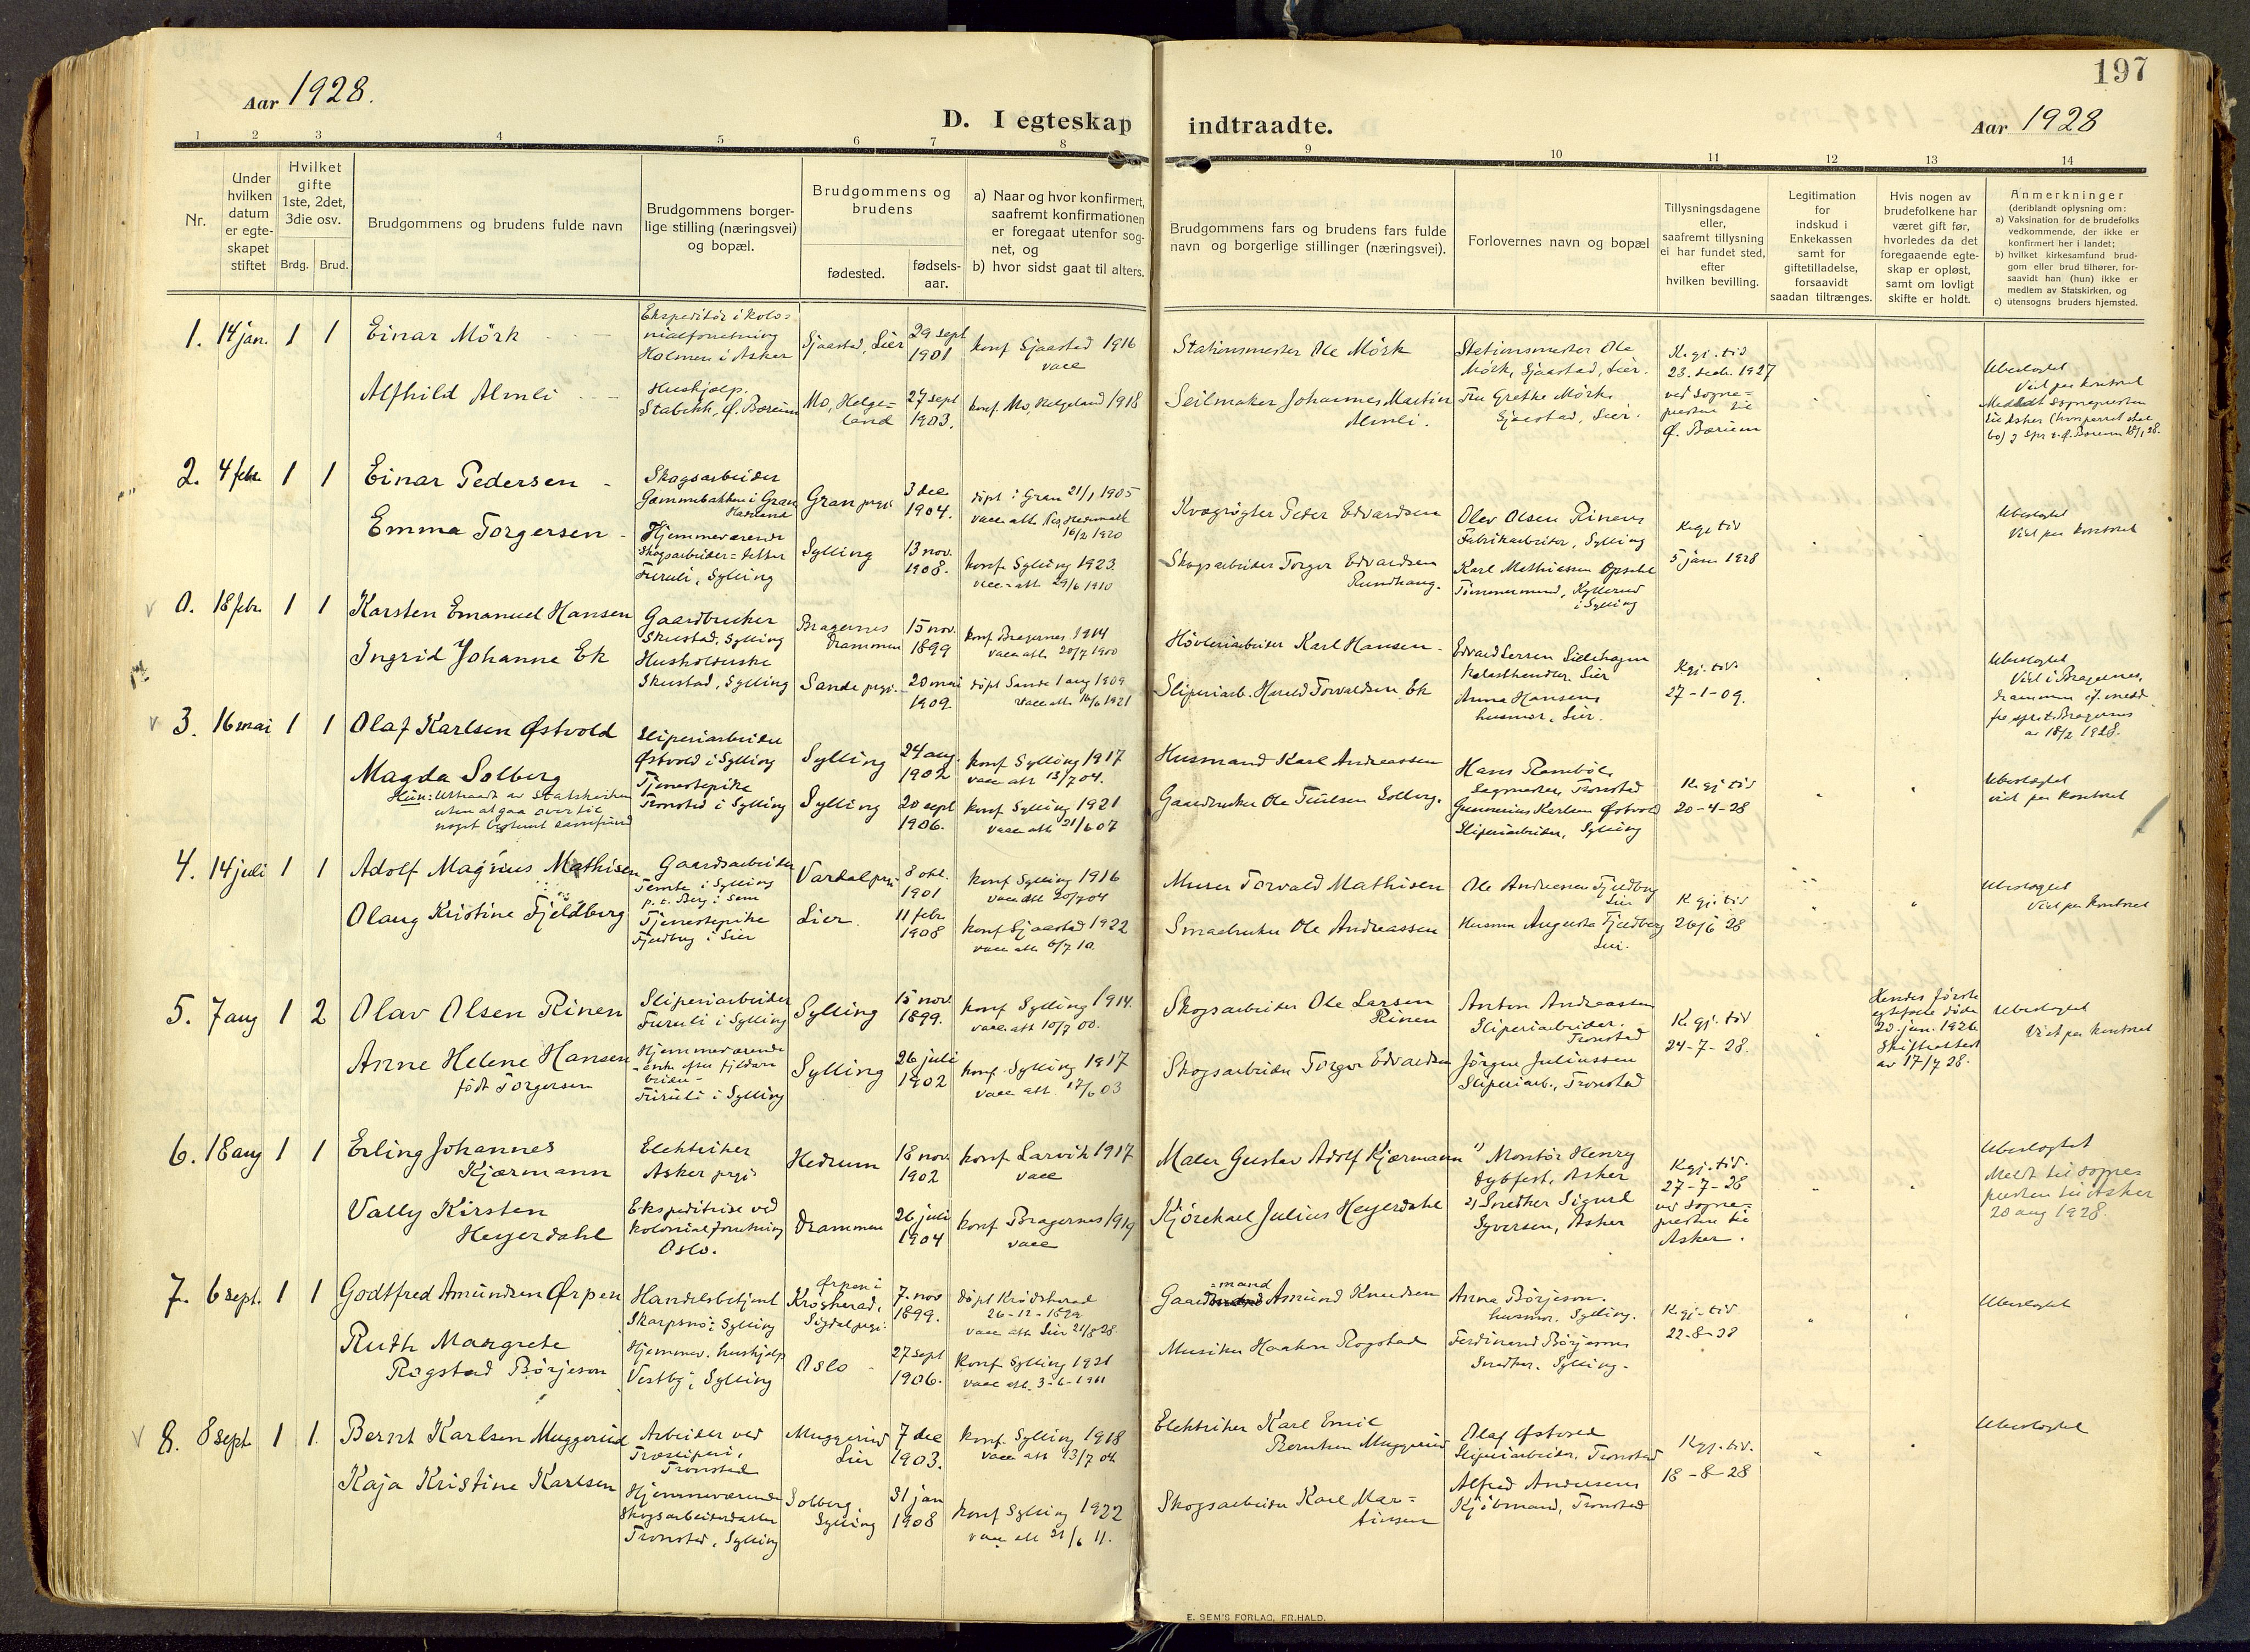 197
Aar 1928.
D. I egteskap indtraadte.
Aar 1928
1 2 3 4 5 6 7 8 9 10 11 12 13 14
Nr.
Under
hvilken
datum
er egte-
skapet
stiftet
Hvilket
gifte
1ste, 2det,
3die osv.
Brdg. Brud.
Brudgommens og brudens fulde navn
Brudgommens borger-
lige stilling (næringsvei)
og bopæl.
Brudgommens og
brudens
fødested.
fødsels-
aar.
a) Naar og hvor konfirmert,
saafremt konfirmationen
er foregaat utenfor sog-
net, og
b) hvor sidst gaat til alters.
Brudgommens fars og brudens fars fulde
navn og borgerlige stillinger (næringsvei).
Forlovernes navn og bopæl
Tillysningsdagene
eller,
saafremt tillysning
ei har fundet sted,
efter
hvilken bevilling.
Legitimation
for
indskud i
Enkekassen
samt for
giftetilladelse,
forsaavidt
saadan tiltrænges.
Hvis nogen av
brudefolkene har
været gift før,
hvorledes da det
foregaaende egte-
skap er opløst,
samt om lovligt
skifte er holdt.
Anmerkninger
(deriblandt oplysning om:
a) Vaksination for de brudefolks
vedkommende, der ikke er
konfirmert her i landet;
b) hvilket kirkesamfund brud-
gom eller brud tilhører, for-
saavidt han (hun) ikke er
medlem av Statskirken, og
c) utensogns bruders hjemsted.
1. 14 jan. 1 1
Einar Mörk
Ekspeditör i kolo-
nialforretning
Holmen i Asker
Sjaastad, Lier
29 sept
1901
konf Sjaastad 1916
vacc
Stationsmester Ole Mörk
Stationsmester Ole
Mörk, Sjaastad, Lier.
Kgj. tid
23. dech. 1927
ved sogne-
presten til
Ø. Bærum
Alfhild Almli
Hushjælp.
Stabekk, Ø. Bærum
Mo, Helge-
land
27 sept
1903.
konf Mo, Helgeland 1918
Seilmaker Johannes Martin
Almli.
Fru Grethe Mörk
Sjaastad, Lier.
Ubeslegtet
Viet paa kontoret
Meddelt sognepresten
til Asker
2. 4 febr. 1 1
Einar Pedersen
Skogsarbeider
Gammebakken i Gran
Hadeland
Gran prgj.
3 dec
1904.
döpt i Gran 21/1 1905
16/2 1920
Kvægrögter Peder Edvardsen
Olav Olsen Rinen
Fabrikarbeider, Sylling
Kgj. tid
5 jan 1928
Ubeslegtet
Viet paa kontoret
Emma Torgersen
Hjemmeværende
Skogsarbeider-datter
Furuli, Sylling
Sylling
13 nov.
1908.
konf Sylling 1923.
vacc. att 29/6 1910
Skogsarbeider Torger Edvardsen
Rundhaug.
Karl Mathiesen Opsahl
Tömmermand, Kyllerud
i Sylling
0. 18 febr. 1 1
Karsten Emanuel Hansen
Gaardbruker
Skustad, Sylling
Bragernes
Drammen
15 nov.
1899
konf Bragernes 1914
vacc att. 20/7 1900
Hövleriarbeider Karl Hansen
Edvard Larsen Lidehagen
Lier
Kgj. tid.
27-1-09.
Ubeslegtet
Viet i Bragernes,
Drammen
Ingrid Johanne Ek
Husholderske
Skustad, Sylling
Sande prgj.
20 mai
1909.
döpt Sande 1 aug 1909
vacc att. 16/6 1921
Sliperiarb. Harald Torvaldsen Ek
Anna Hansen
husmor, Lier.
av 18/2 1928.
3. 16 mai 1 1
Olaf Karlsen Østvold
Sliperiarbeider
Østvold i Sylling
Sylling
24 aug.
1902
konf Sylling 1917
vacc att 13/7 04.
Husmand Karl Andreassen
Hans Rambøl
Sagmester, Tronstad
Kgj tid
20-4-28
Ubeslegtet
viet paa kontoret
Magda Solberg
Hun: Uttraadt av Statskirken
uten at gaa over til
noget bestemt samfund
Tjenestepike
Tronstad i Sylling
Sylling
20 sept
1906.
konf Sylling 1921
vacc att 21/6 07
Gaardbruker Ole Truelsen Solberg.
Gunnerius Karlsen Østvold
Sliperiarbeider, Sylling
4. 14 juli 1 1
Adolf Magnus Mathisen
Gaardsarbeider
Tømte i Sylling
p. t. Berg i Sem
Vardal prgj.
8 okt.
1901
konf Sylling 1916
vacc att 20/7 04
Murer Torvald Mathisen
Ole Andreassen Fjeldberg
Lier
Kgj. tid
26/6 28
Ubeslegtet
Viet paa kontoret
Olaug Kristine Fjeldberg
Tjenestepike
Fjeldberg i Lier
Lier.
11 febr
1908
konf Sjaastad 1922
vacc att 6/7 10.
Smaabruker Ole Andreassen
Husmor Augusta Fjeldberg
Lier.
5. 7 aug 1 2
Olav Olsen Rinen
Sliperiarbeider
Furuli i Sylling
Sylling
15 nov.
1899.
konf Sylling 1914.
vacc. att 10/7 00.
Skogsarbeider Ole Larsen
Rinen
Anton Andreassen
Sliperiarbeider.
Tronstad
Kgj. tid
24-7-28.
Hendes förste
egtefelle döde
20. jan. 1926
Skifteattest
av 17/7 28.
Ubeslegtet
Viet paa kontoret
Anne Helene Hansen
födt Torgersen
Hjemmeværende
- enke efter
Furuli i Sylling
Sylling
26 juli
1902
konf. Sylling 1917
vacc att. 17/6 03
Skogsarbeider Torger Edvardsen
Jörgen Juliussen
Sliperiarb., Tronstad
6. 18 aug 1 1
Erling Johannes
Kjærmann
Elektriker
Asker prgj.
Hedrum
18 nov.
1902
konf Larvik 1917
vacc
Maler Gustav Adolf Kjærmann
1) Montör Henry
Dybfest, Asker
Kgj. tid.
27-7-28
ved sogne-
presten til
Asker.
Ubeslegtet
Meldt til sogne-
presten til Asker
20 aug 1928.
Vally Kirsten
Heyerdahl
Ekspeditrise ved
kolonialforretning
Oslo.
Drammen
26 juli
1904
konf Bragernes 1919
vacc
Julius Heyerdahl
2) Snedker Sigurd
Syversen, Asker
7. 6 sept. 1 1
Godtfred Amundsen Ørpen
Handelsbetjent
Skarpsno i Sylling
Ørpen i
Krösherad,
Sigdal prgj.
7. nov
1899.
döpt Krödsherad
26-12-1899
vacc att Lier 21/8 28.
Gaardmand Amund Knudsen
Anna Börjeson.
husmor, Sylling.
Kgj. tid
22-8-28
Ubeslegtet
Ruth Margrete
Rogstad Börjeson
Hjemmev. hushjelp
Vestby, Sylling
Oslo
27 sept
1906.
Konf Sylling 1921
vacc att. 3-6-1911
Musiker Haakon Rogstad
Ferdinand Börjeson
Snedker. Sylling.
8. 8 sept 1 1.
Bernt Karlsen Muggerud
Arbeider ved
Træsliperi,
Tronstad
Muggerud
Lier
7 dec
1903.
konf. Sylling 1918
vacc att 13/7 04.
Elektriker Karl Emil
Berntsen Muggerud
Olaf Østvold
Sliperiarbeider, Tronstad
Kgj. tid.
18-8-28
Ubeslegtet
Kaja Kristine Karlsen
Hjemmeværende
Skogsarbeiderdatter
Tronstad, Sylling
Solberg.
Sylling
31 jan
1908
konf Sylling 1922
vacc att 21/6 11.
Skogsarbeider Karl Mar-
tinsen
Alfred Andersen
Kjöbmand, Tronstad
E. SEM'S FORLAG, FR.HALD.